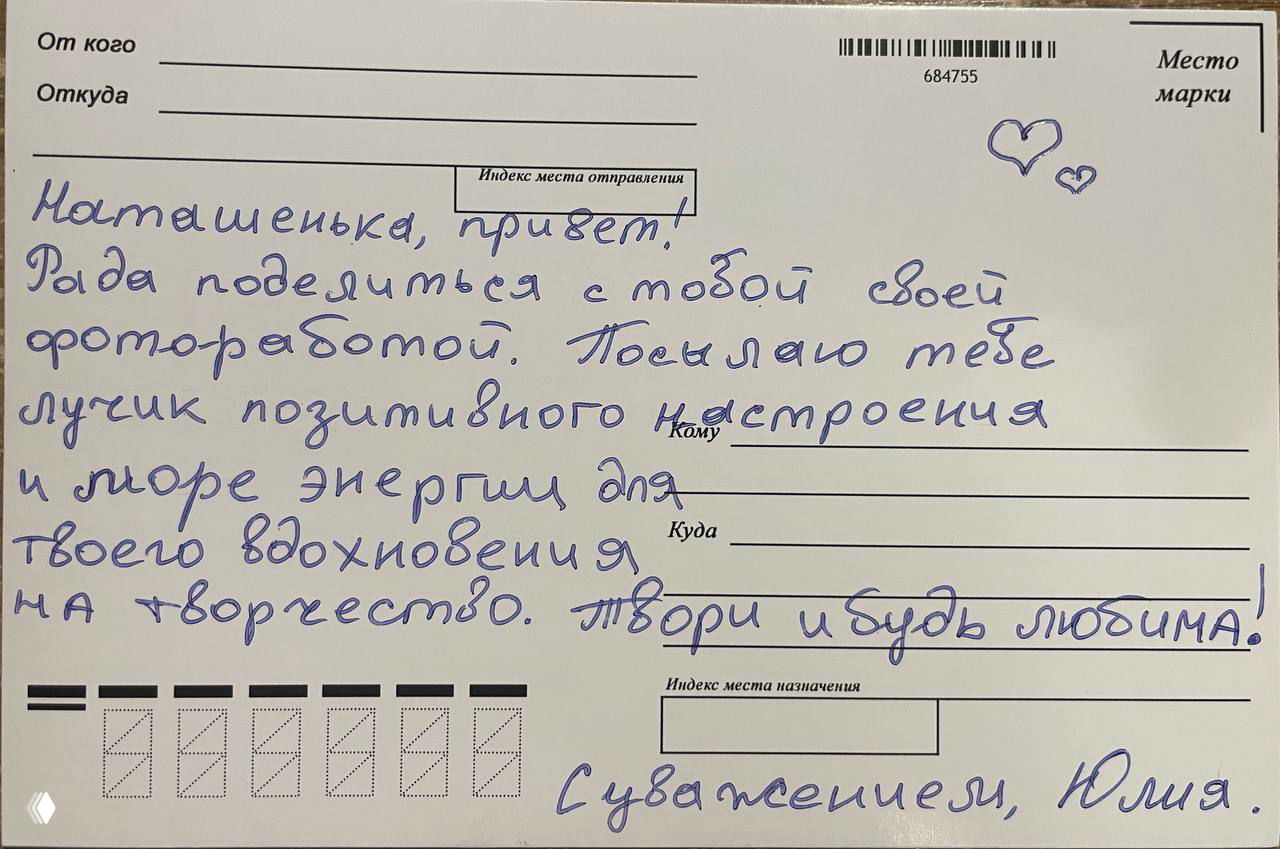 От кого
Откуда
684755
Место
марки
Индекс места отправления
Наташенька, привет!
Рада поделиться с тобой своей
фотоработой. Посылаю тебе
лучик позитивного настроения
Кому
и море энергии для
Куда
твоего вдохновения
на творчество. Твори и будь любима!
Индекс места назначения
С уважением, Юлия.